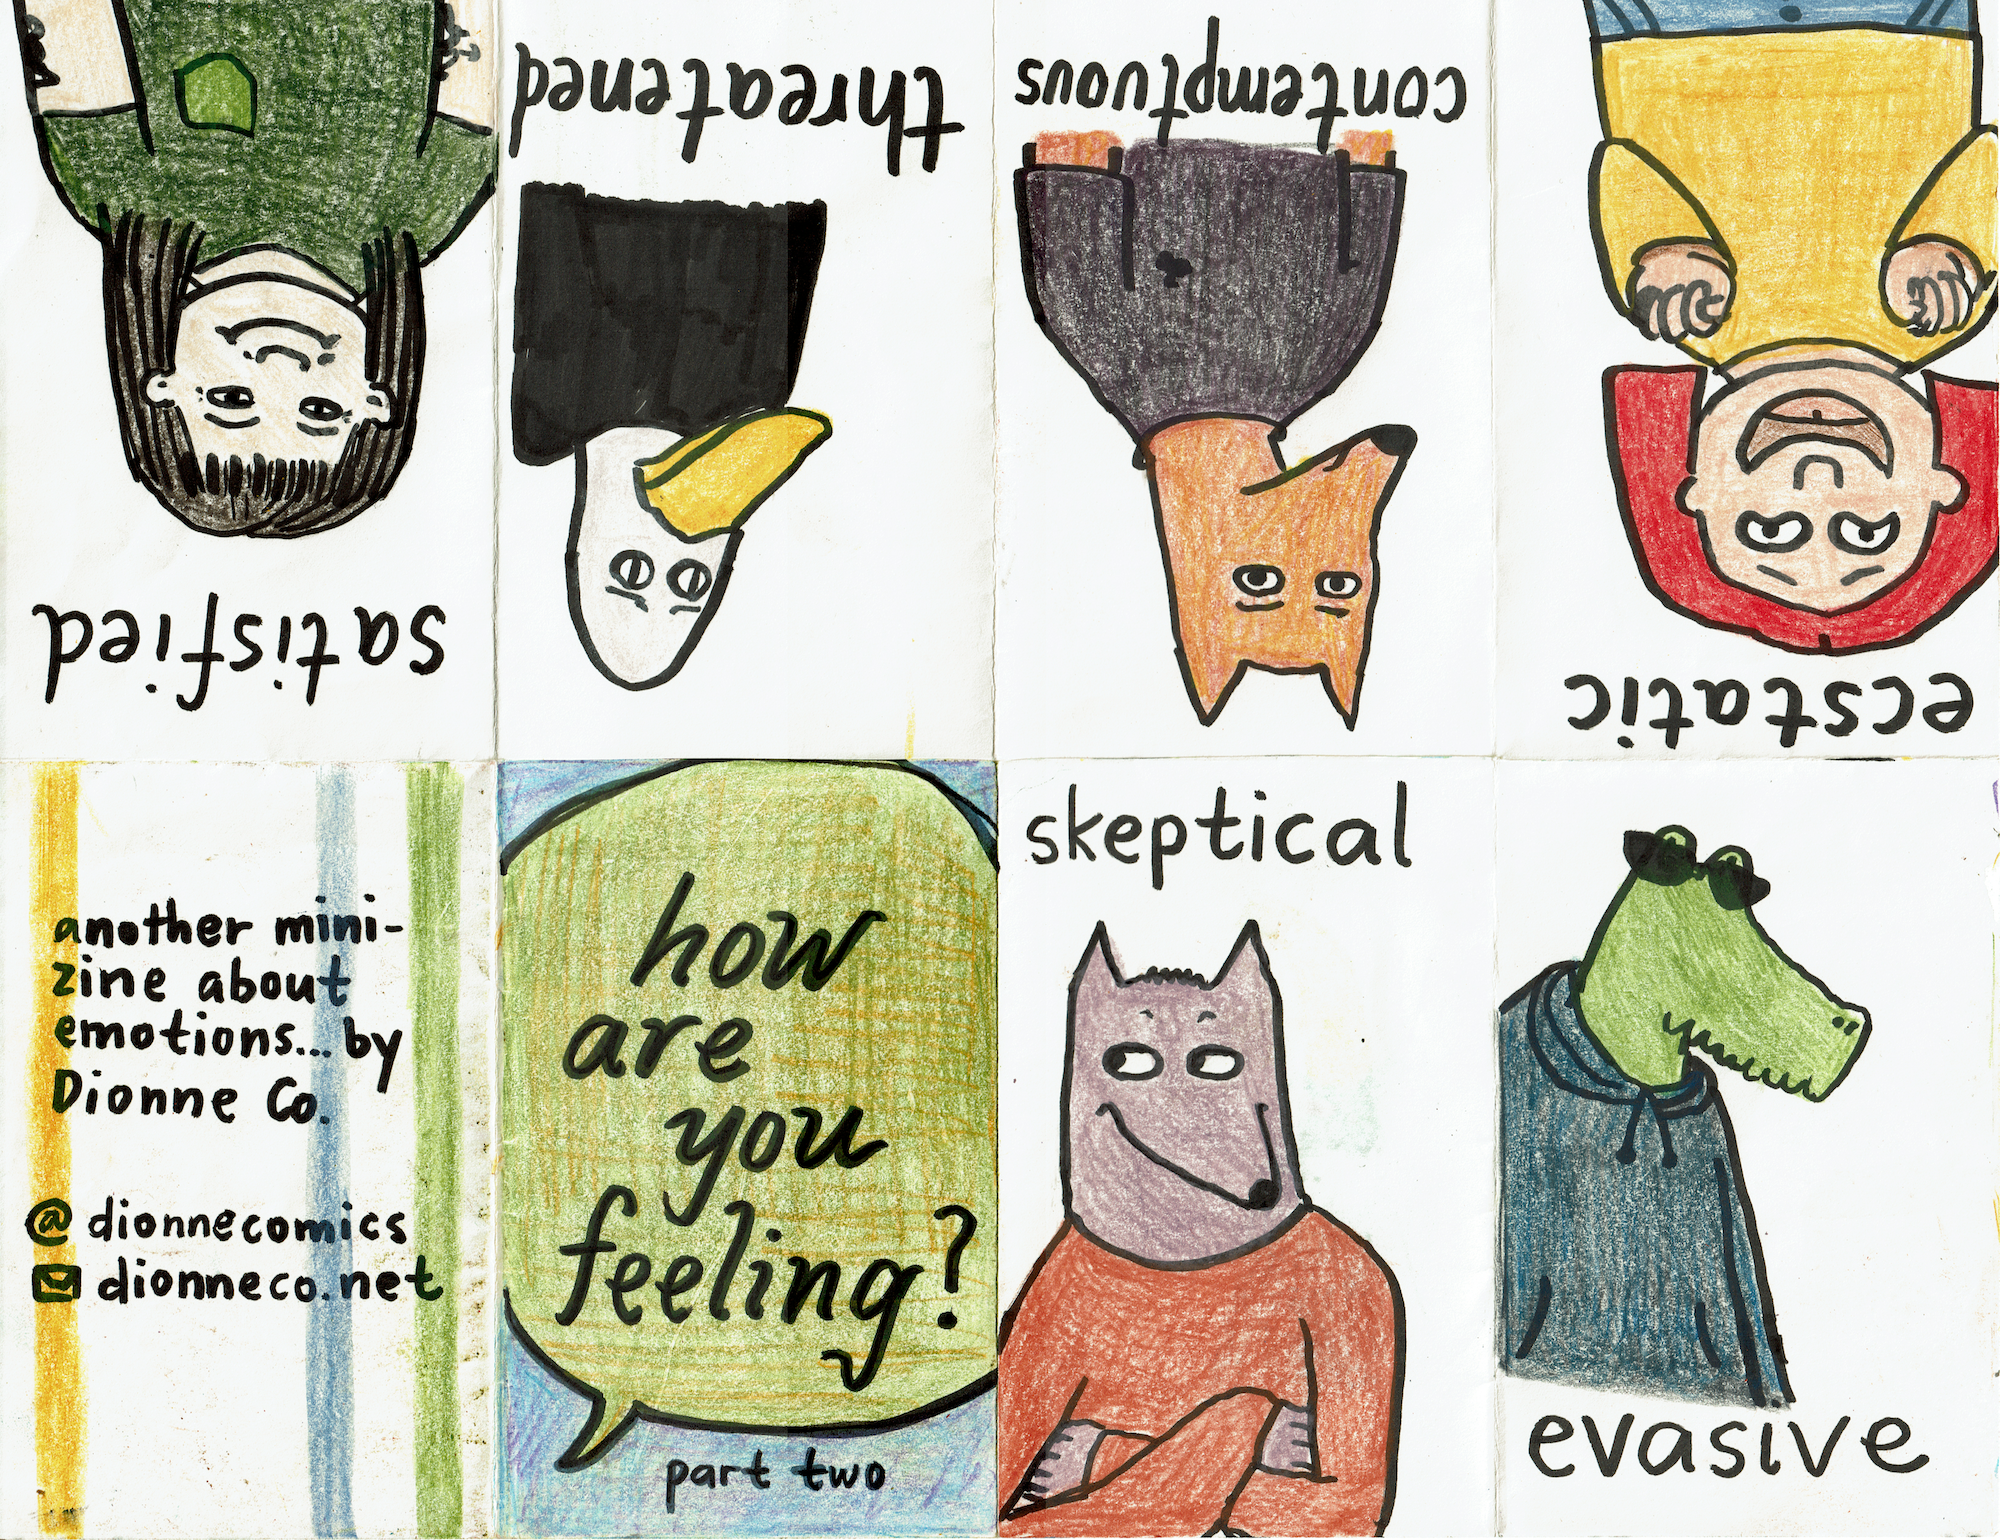 how
are
you
feeling?
part two
skeptical
evasive
ecstatic
contemptuous
threatened
satisfied
another mini-
zine about
emotions... by
Dionne Co.
@ dionnecomics
dionneco.net